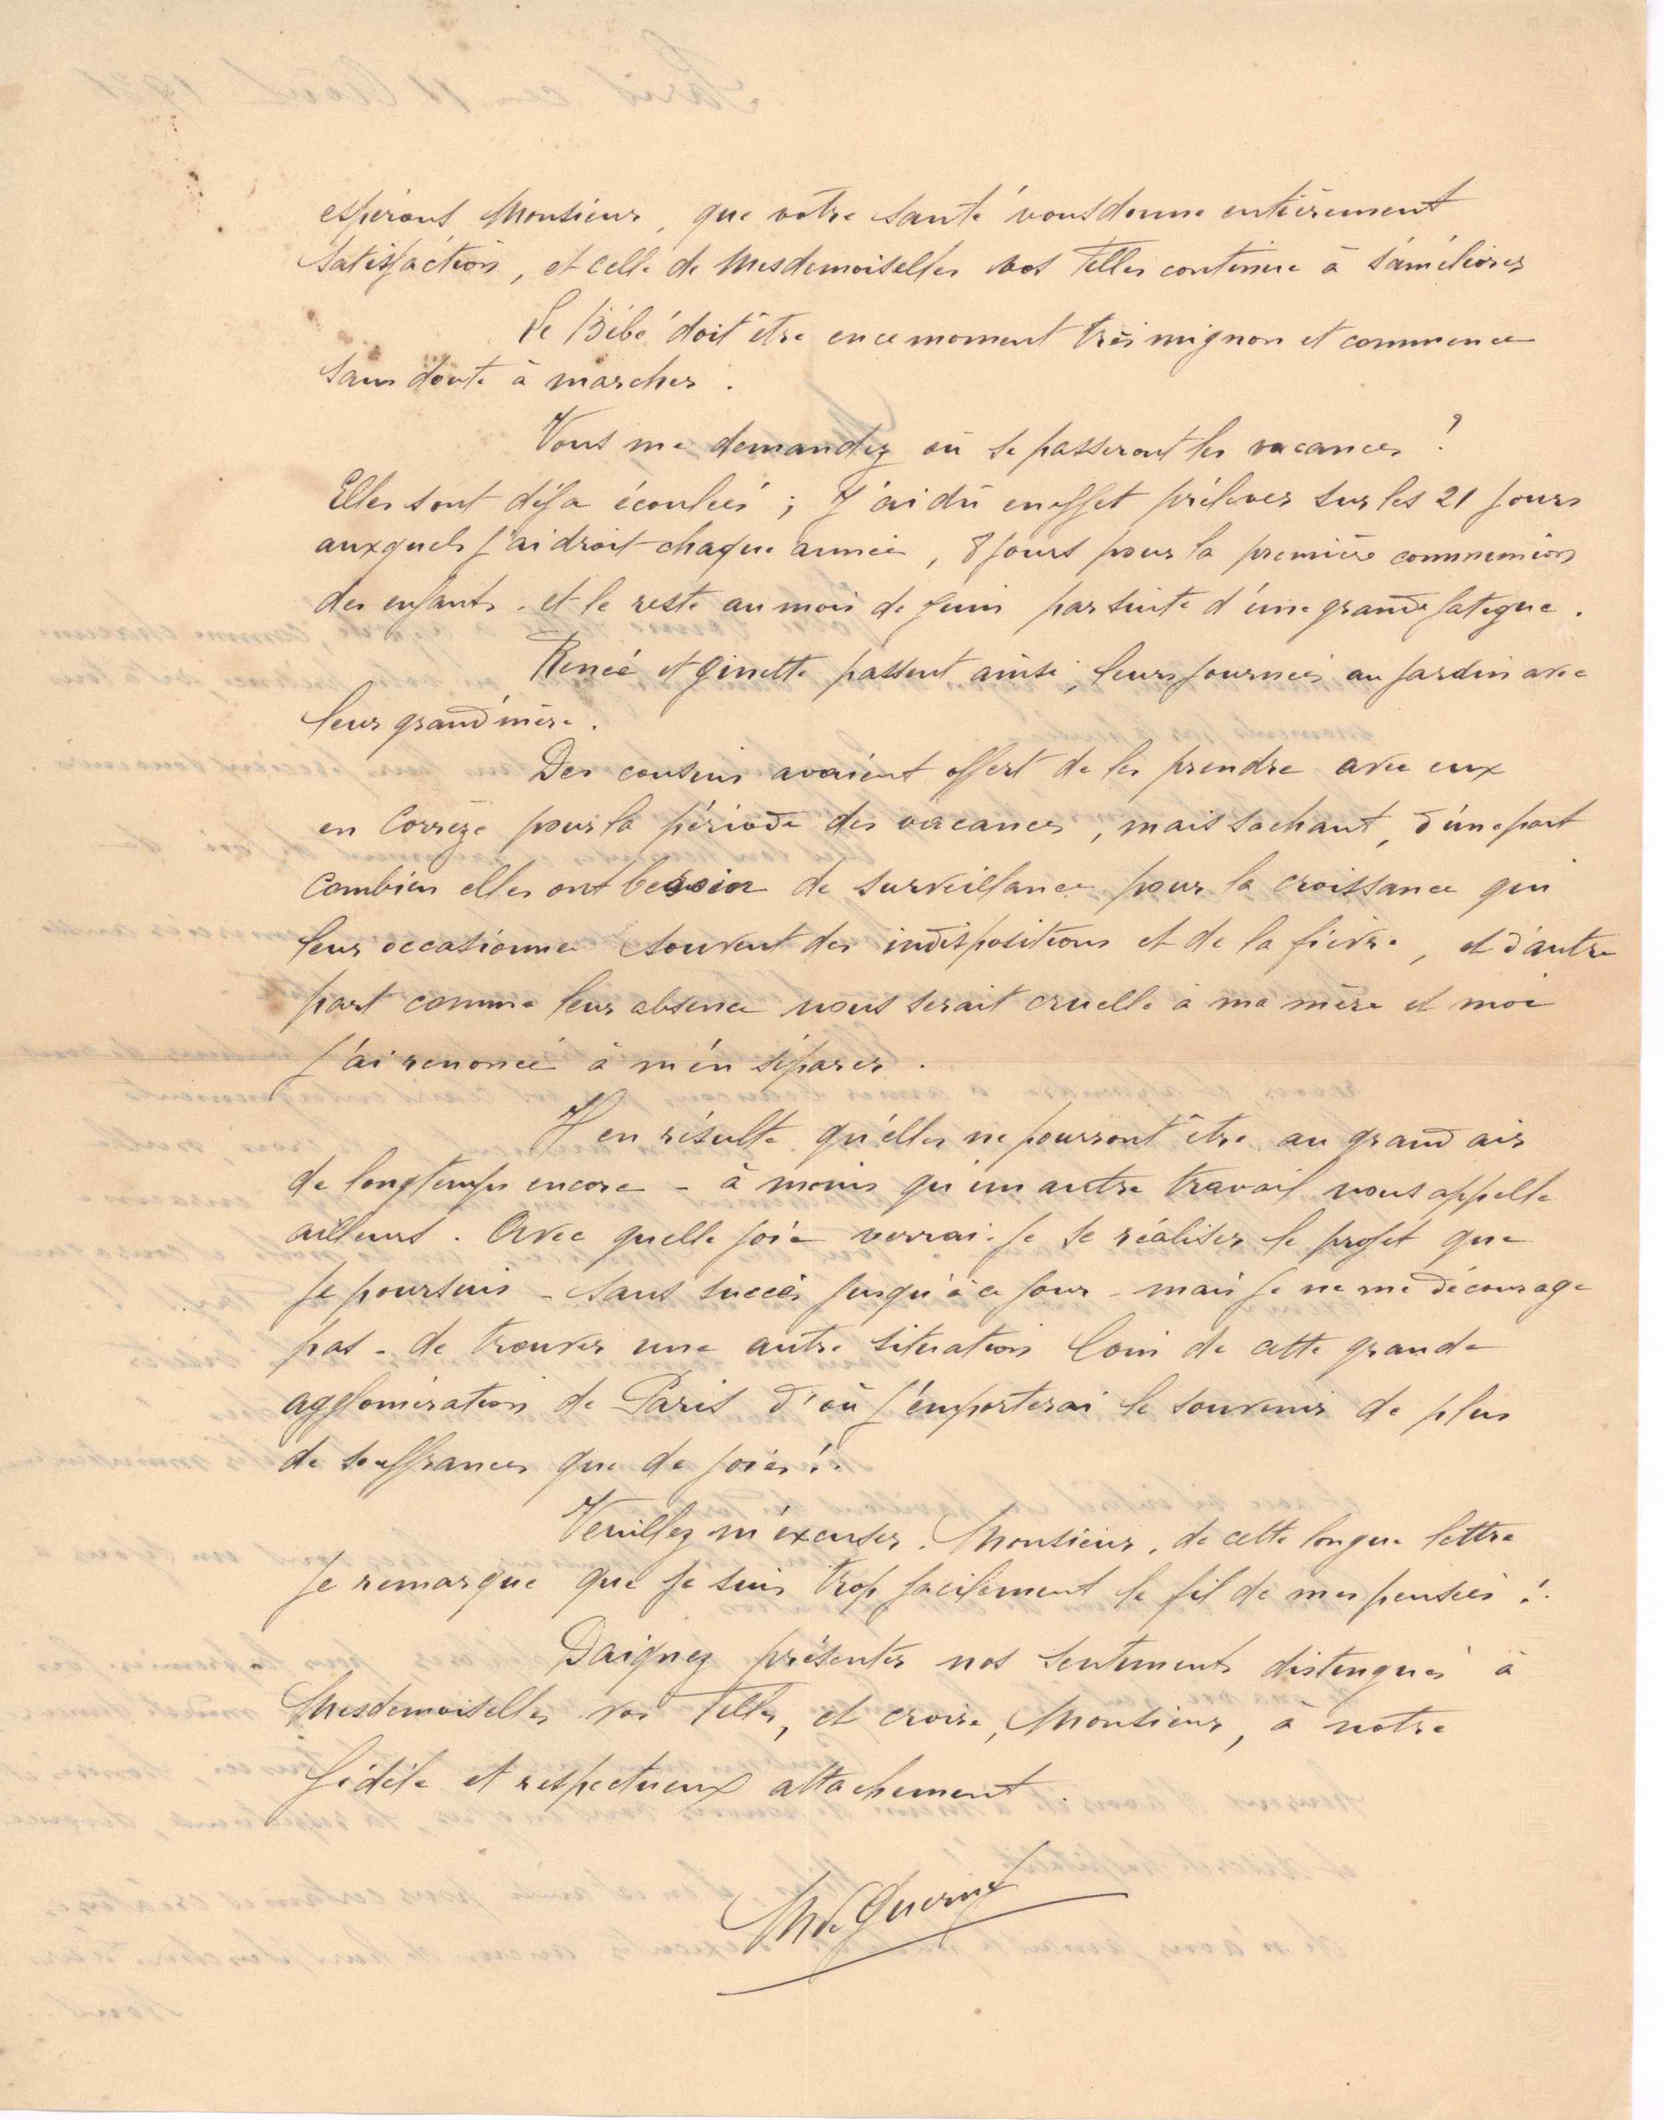 espérons Monsieur, que votre santé vous donne entièrement
satisfaction, et celle de Mesdemoiselles vos filles continue à s'améliorer
Le Bébé doit être en ce moment très mignon et commence
sans doute à marcher.
Vous me demandez où se passeront les vacances ?
Elles sont déjà écoulées ; J'ai dû en effet prélever sur les 21 jours
auxquels j'ai droit chaque année, 8 jours pour la première communion
des enfants. et le reste au mois de Juin par suite d'une grande fatigue.
Renée et Ginette passent ainsi, leurs journées au jardin avec
leur grand'mère.
Des cousins avaient offert de les prendre avec eux
en Corrèze pour la période des vacances, mais sachant, d'une part
combien elles ont besoin de surveillance pour la croissance qui
leur occasionne souvent des indispositions et de la fièvre, et d'autre
part comme leur absence nous serait cruelle à ma mère et moi
j'ai renoncé à m'en séparer.
Il en résulte qu'elles ne pourront être au grand air
de longtemps encore - à moins qu'un autre travail nous appelle
ailleurs. Avec quelle joie verrai-je se réaliser le projet que
je poursuis - sans succès jusqu'à ce jour - mais je ne me décourage
pas - de trouver une autre situation loin de cette grande
agglomération de Paris d'où j'emporterai le souvenir de plus
de souffrances que de joies !.
Veuillez m'excuser. Monsieur, de cette longue lettre
Je remarque que je suis trop facilement le fil de mes pensées !.
Daignez présenter nos sentiments distingués à
Mesdemoiselles vos filles, et croire, Monsieur, à notre
fidèle et respectueux attachement.